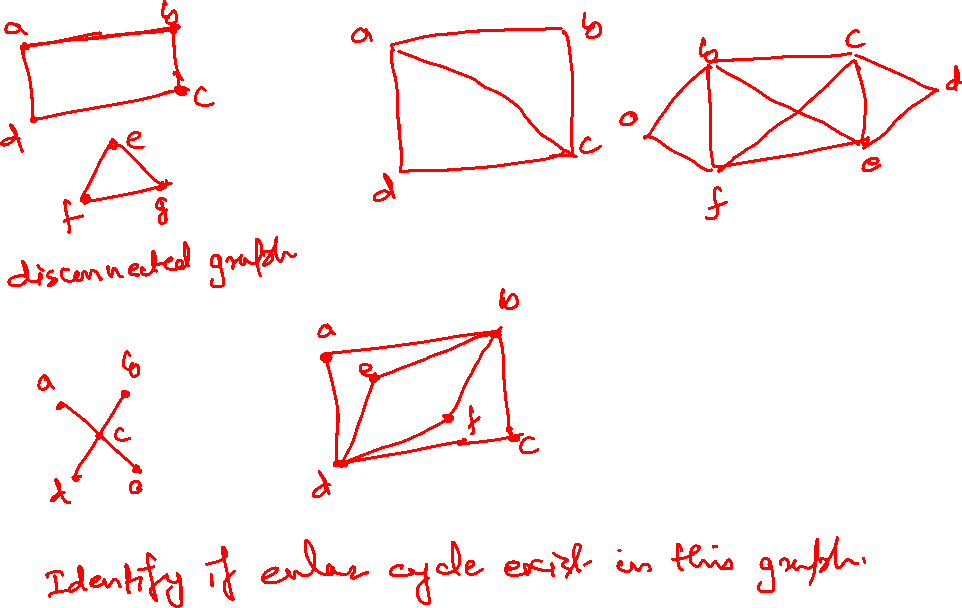 a b
d c
e
f g
disconnected graph
a b
d c
b c d
a
f e
a b
c
d e
a b
e
f
d c
Identify if euler cycle exist in this graph.